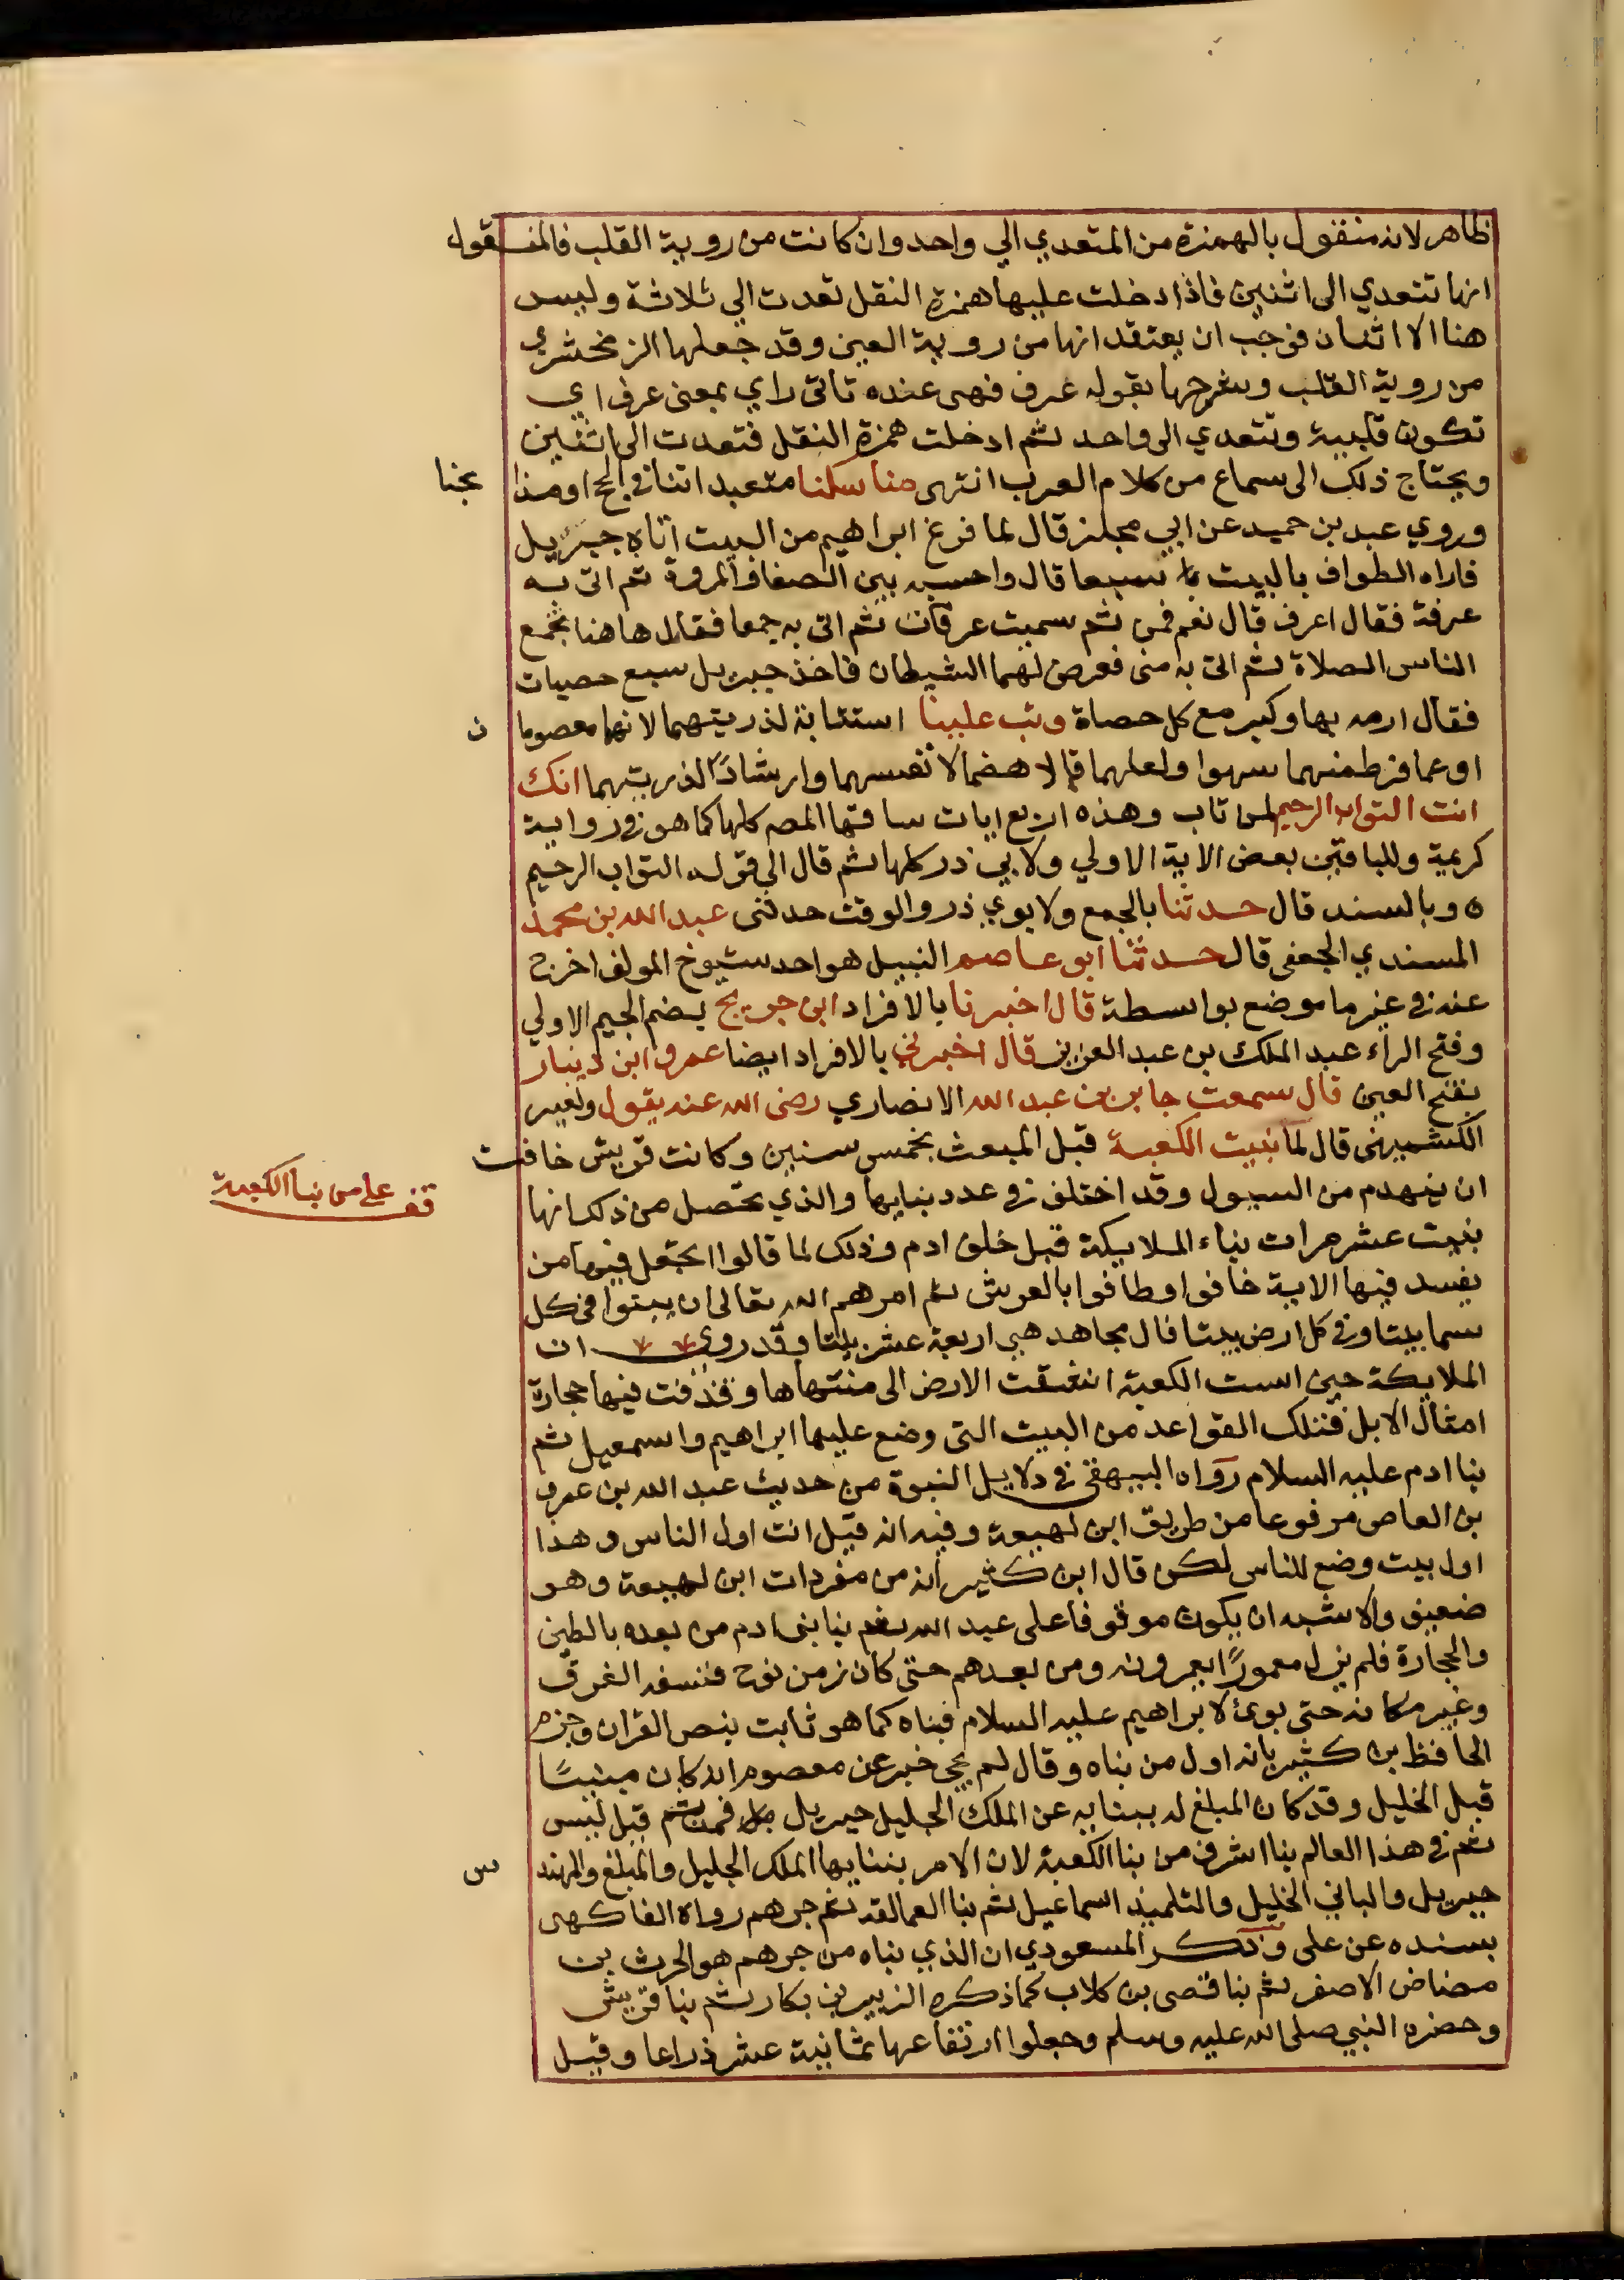 ظاهر لانه منقول بالهمزة من المتعدي الي واحد وان كانت من روية القلب فالمنقول
انها تتعدي الى اثنين فاذا دخلت عليها همزة النقل تعدت الي ثلاثة وليس
هنا الا اثنان فوجب ان يعتقد انها من روية العين وقد جعلها الزمخشري
من روية القلب وشرحها بقوله عرف فهى عنده تاتى راي بمعنى عرف اي
تكون قلبية وتتعدي الى واحد ثم ادخلت همزة النقل فتعدت الى اثنين
ويحتاج ذلك الى سماع من كلام العرب انتهى مناسكنا متعبداتنا في الحج او مذا بحنا
وروي عبد بن حميد عن ابي مجلز قال لما فرغ ابراهيم من البيت اتاه جبريل
فاراه الطواف بالبيت سبعا قال واحسبه بين الصفا والمروة ثم اتى به
عرفة فقال اعرف قال نعم فمن ثم سميت عرفات ثم اتى به جمعا فقال هاهنا تجمع
الناس الصلاة ثم اتى به منى فعرض لهما الشيطان فاخذ جبريل سبع حصيات
فقال ارمه بها وكبر مع كل حصاة وتب علينا استتابة لذريتهما لانهما معصوما ن
او عما فرط منهما سهوا ولعلهما قالا هضما لانفسهما وارشادًا لذريتهما انك
انت التواب الرحيم لمن تاب وهذه اربع ايات ساقها المص كلها كما هو في رواية
كريمة وللباقين بعض الاية الاولي ولابي ذر كلها ثم قال الي قوله التواب الرحيم
ه وبالسند قال حدثنا بالجمع ولابوي ذر والوقت حدثنى عبد الله بن محمد
المسندي الجعفى قال حدثنا ابو عاصم النبيل هو احد شيوخ المولف اخرج
عنه في غير ما موضع بواسطة قال اخبرنا بالافراد ابن جريج بضم الجيم الاولي
وفتح الراء عبد الملك بن عبد العزيز قال اخبرني بالافراد ايضا عمرو ابن دينار
بفتح العين قال سمعت جابر بن عبد الله الانصاري رضى الله عنه يقول ولغير
الكشميهنى قال لما بنيت الكعبة قبل المبعث بخمس سنين وكانت قريش خافت
ان ينهدم من السيول وقد اختلف في عدد بنايها والذي تحصل من ذلك انها
قف على من بنا الكعبة
بنيت عشر مرات بناء الملايكة قبل خلق ادم وذلك لما قالوا اتجعل فيها من
يفسد فيها الاية خافوا وطافوا بالعرش ثم امرهم الله تعالى ان يبنوا في كل
سما بيتا وفي كل ارض بيتا قال مجاهد هي اربعة عشر بيتا وقد روي ان
الملايكة حين اسست الكعبة انشقت الارض الى منتهاها وقذفت فيها حجارة
امثال الابل فتلك القواعد من البيت التى وضع عليها ابراهيم واسمعيل ثم
بنا ادم عليه السلام رواه البيهقى في دلايل النبوة من حديث عبد الله بن عمرو
بن العاص مرفوعا من طريق ابن لهيعة وفيه انه قيل انت اول الناس وهذا
اول بيت وضع للناس لكن قال ابن كثير انه من مفردات ابن لهيعة وهو
ضعيف والاشبه ان يكون موقوفا على عبد الله ثم بنا بنى ادم من بعده بالطين
والحجارة فلم يزل معمورًا يعمرونه ومن بعدهم حتى كان زمن نوح فنسفه الغرق
وغير مكانه حتى بوئ لابراهيم عليه السلام فبناه كما هو ثابت بنص القران وجزم
الحافظ بن كثير بانه اول من بناه وقال لم يجى خبر عن معصوم انه كان مبنيًا
قبل الخليل وقد كان المبلغ له ببنايه عن الملك الجليل جبريل فمن ثم قيل ليس
ثم في هذا العالم بنا اشرف من بنا الكعبة لان الامر ببنايها الملك الجليل والمبلغ والمهند س
جبريل والباني الخليل والتلميذ اسماعيل ثم بنا العمالقة ثم جرهم رواه الفاكهى
بسنده عن على وذكر المسعودي ان الذي بناه من جرهم هو الحرث بن
مضاض الاصغر ثم بنا قصى بن كلاب كما ذكره الزبير بن بكار ثم بنا قريش
وحضره النبي صلى الله عليه وسلم وجعلوا ارتفاعها ثمانية عشر ذراعا وقيل